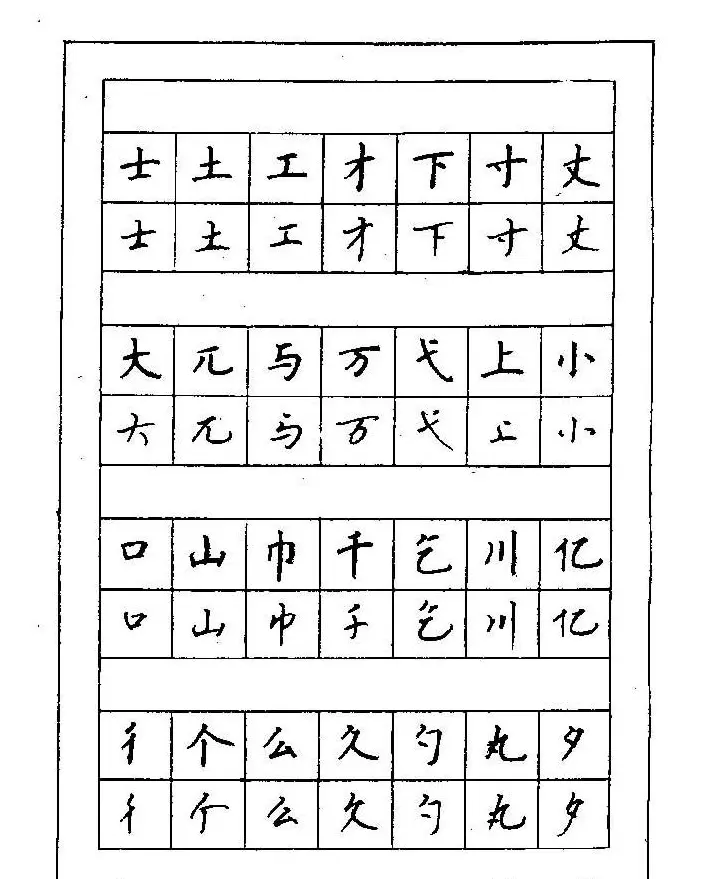 士土工才下寸丈
士土工才下寸丈
大兀与万弋上小
大兀与万弋上小
口山巾千乞川亿
口山巾千乞川亿
彳个么久勺丸夕
彳个么久勺丸夕